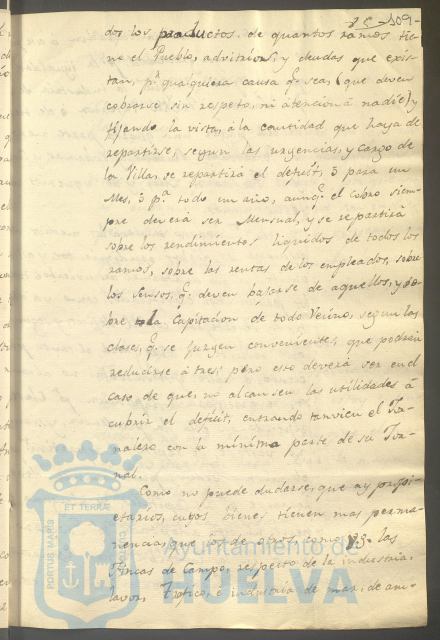 25-109-
dos los productos de quantos ramos tie-
ne el Pueblo, advitrios, y deudas que exis-
tan, pr. qualquiera causa q. sea, (que deven
cobrarse sin respeto, ni atencion á nadie) y
fijando la vista, á la cantidad que haya de
repartirse, segun las urgencias, y cargo de
la Villa, se repartirá el deficit, ó para un
Mes, ó pa. todo un año, aunq. el cobro siem-
pre deverá ser Mensual, y se repartirá
sobre los rendimientos liquidos de todos los
ramos, sobre las rentas de los empleados, sobre
los Sensos, q. deven bajarse de aquellos, y so-
bre la Capitacion de todo Vecino, segun las
clases, q. se juzgen conveniente, que podrán
reducirse á tres: pero esto deverá ser en el
caso de que, no alcansen las utilidades á
cubrir el deficit, entrando tanvien el Jor-
nalero con la minima parte de su Jor-
nal.
Como no puede dudarse, que ay propi-
etarios, cuyos bienes tienen mas perma-
nencia, que los de otros, como las
Fincas de Campo, respeito de la industria,
lavor, Trafico, é industria de mar, de am-
PORTUS MARIS
ET TERRÆ
CUSTODIA
Ayuntamiento de
HUELVA